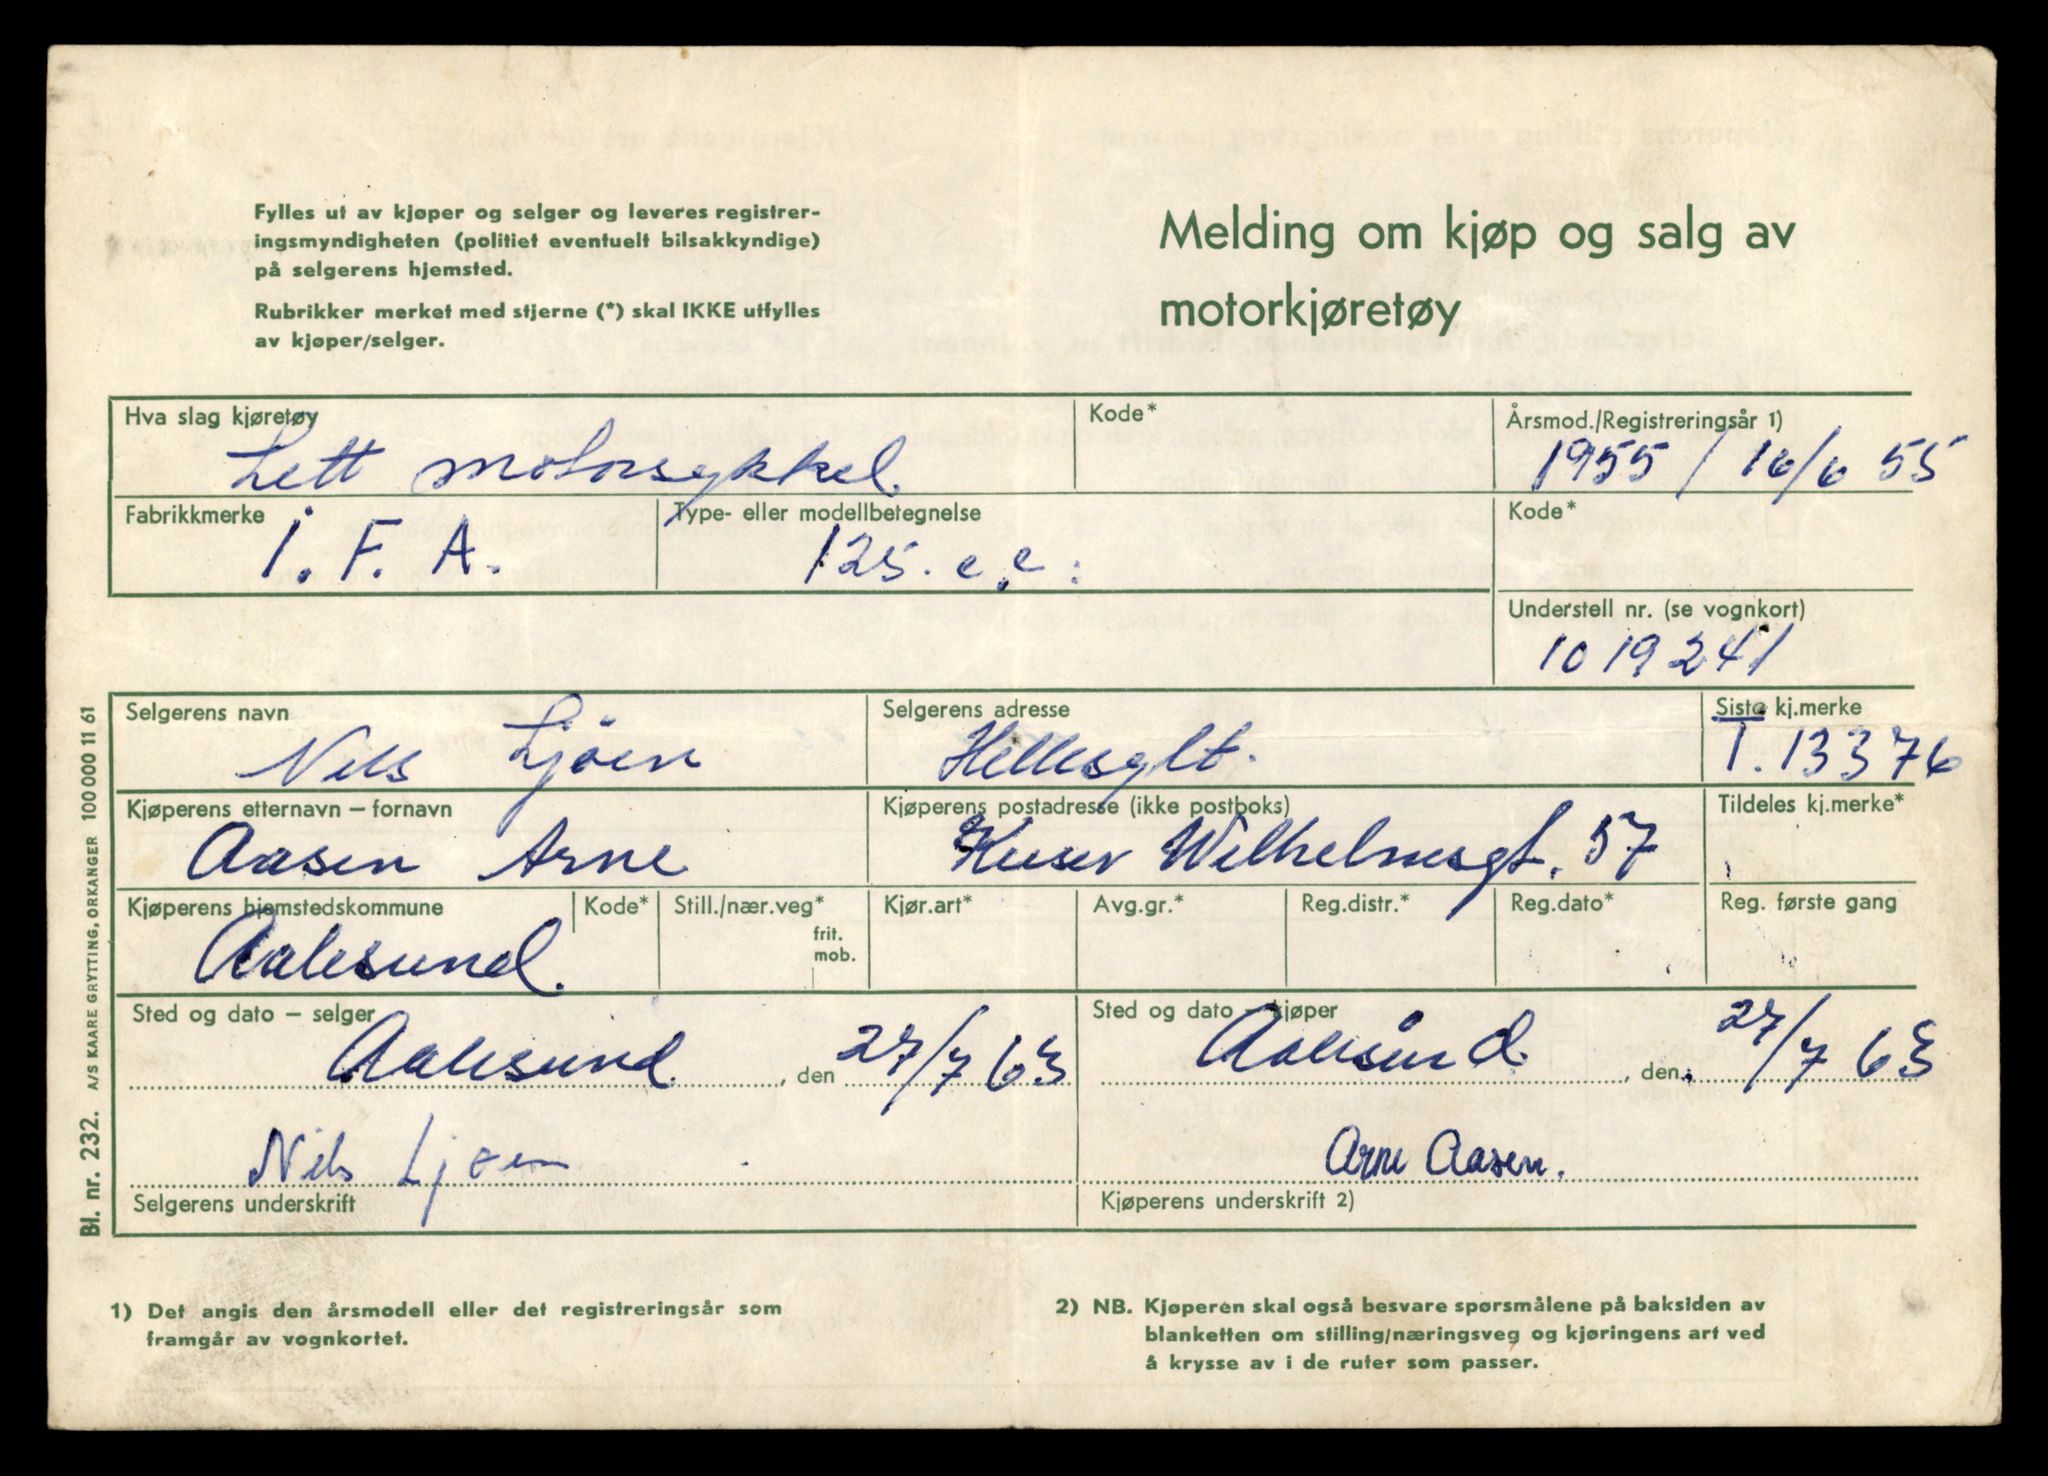 Fylles ut av kjøper og selger og leveres registrer-
ingsmyndigheten (politiet eventuelt bilsakkyndige)
på selgerens hjemsted.
Rubrikker merket med stjerne (*) skal IKKE utfylles
av kjøper/selger.
Melding om kjøp og salg av
motorkjøretøy
Hva slag kjøretøy
Lett motorsykkel
Kode*
Årsmod./Registreringsår 1)
1955 / 16/6 55
Fabrikkmerke
I. F. A.
Type- eller modellbetegnelse
125. c.c.
Kode*
Understell nr. (se vognkort)
1019241
Selgerens navn
Nils Ljöen
Selgerens adresse
Hellesylt.
Siste kj.merke
T. 13376
Kjøperens etternavn – fornavn
Aasen Arne
Kjøperens postadresse (ikke postboks)
Keiser Wilhelmsgt. 57
Tildeles kj.merke*
Kjøperens hjemstedskommune
Aalesund.
Kode*
Still./nær.veg*
frit.
mob.
Kjør.art*
Avg.gr.*
Reg.distr.*
Reg.dato*
Reg. første gang
Sted og dato – selger
Aalesund, den 27/7 63
Sted og dato – kjøper
Aalesund, den 27/7 63
Nils Ljøen
Selgerens underskrift
Arne Aasen.
Kjøperens underskrift 2)
Bl. nr. 232. A/S KAARE GRYTTING, ORKANGER 100 000 11 61
1) Det angis den årsmodell eller det registreringsår som
framgår av vognkortet.
2) NB. Kjøperen skal også besvare spørsmålene på baksiden av
blanketten om stilling/næringsveg og kjøringens art ved
å krysse av i de ruter som passer.